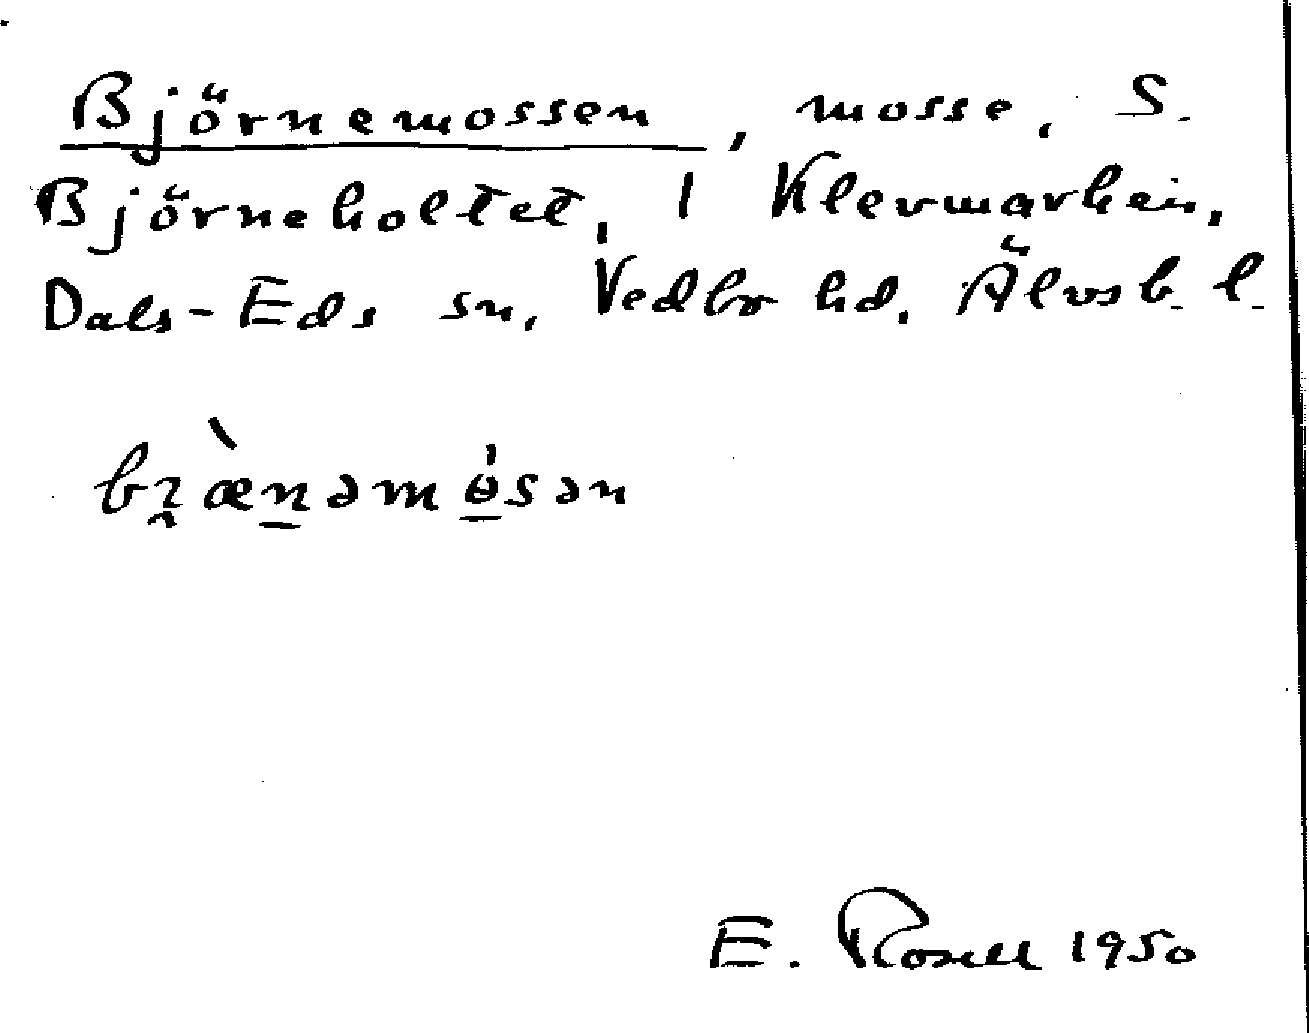 Björnemossen, mosse, S.
Björneholtet, 1 Klevmarken,
Dals-Eds sn, Vedbo hd. Älvsb. l.
bræ̀nəmɵ́sən
E. Rosell 1950